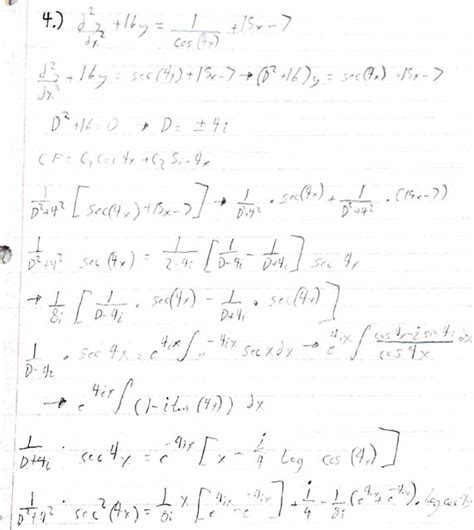 4.) d²y/dx² + 16y = 1/cos(4x) + 15x - 7
d²y/dx² + 16y = sec(4x) + 15x - 7 → (D² + 16)y = sec(4x) + 15x - 7
D² + 16 = 0 → D = ± 4i
CF = C₁ cos 4x + C₂ Sin 4x
1/(D²+4²) [sec(4x) + 15x - 7] → 1/(D²+4²) · sec(4x) + 1/(D²+4²) · (15x - 7)
1/(D²+4²) sec(4x) = 1/(2·4i) [1/(D-4i) - 1/(D+4i)] sec 4x
→ 1/8i [1/(D-4i) · sec(4x) - 1/(D+4i) · sec(4x)]
1/(D-4i) · sec 4x = e^4ix ∫ e^-4ix sec x dx → e^4ix ∫ (cos 4x - i sin 4x)/cos 4x dx
→ e^4ix ∫ (1 - i tan(4x)) dx
1/(D+4i) · sec 4x = e^-4ix [x - i/4 log cos(4x)]
1/(D²+4²) · sec²(4x) = 1/8i x [e^4ix - e^-4ix] + i/4 - 1/8i (e^4ix + e^-4ix) · log cos